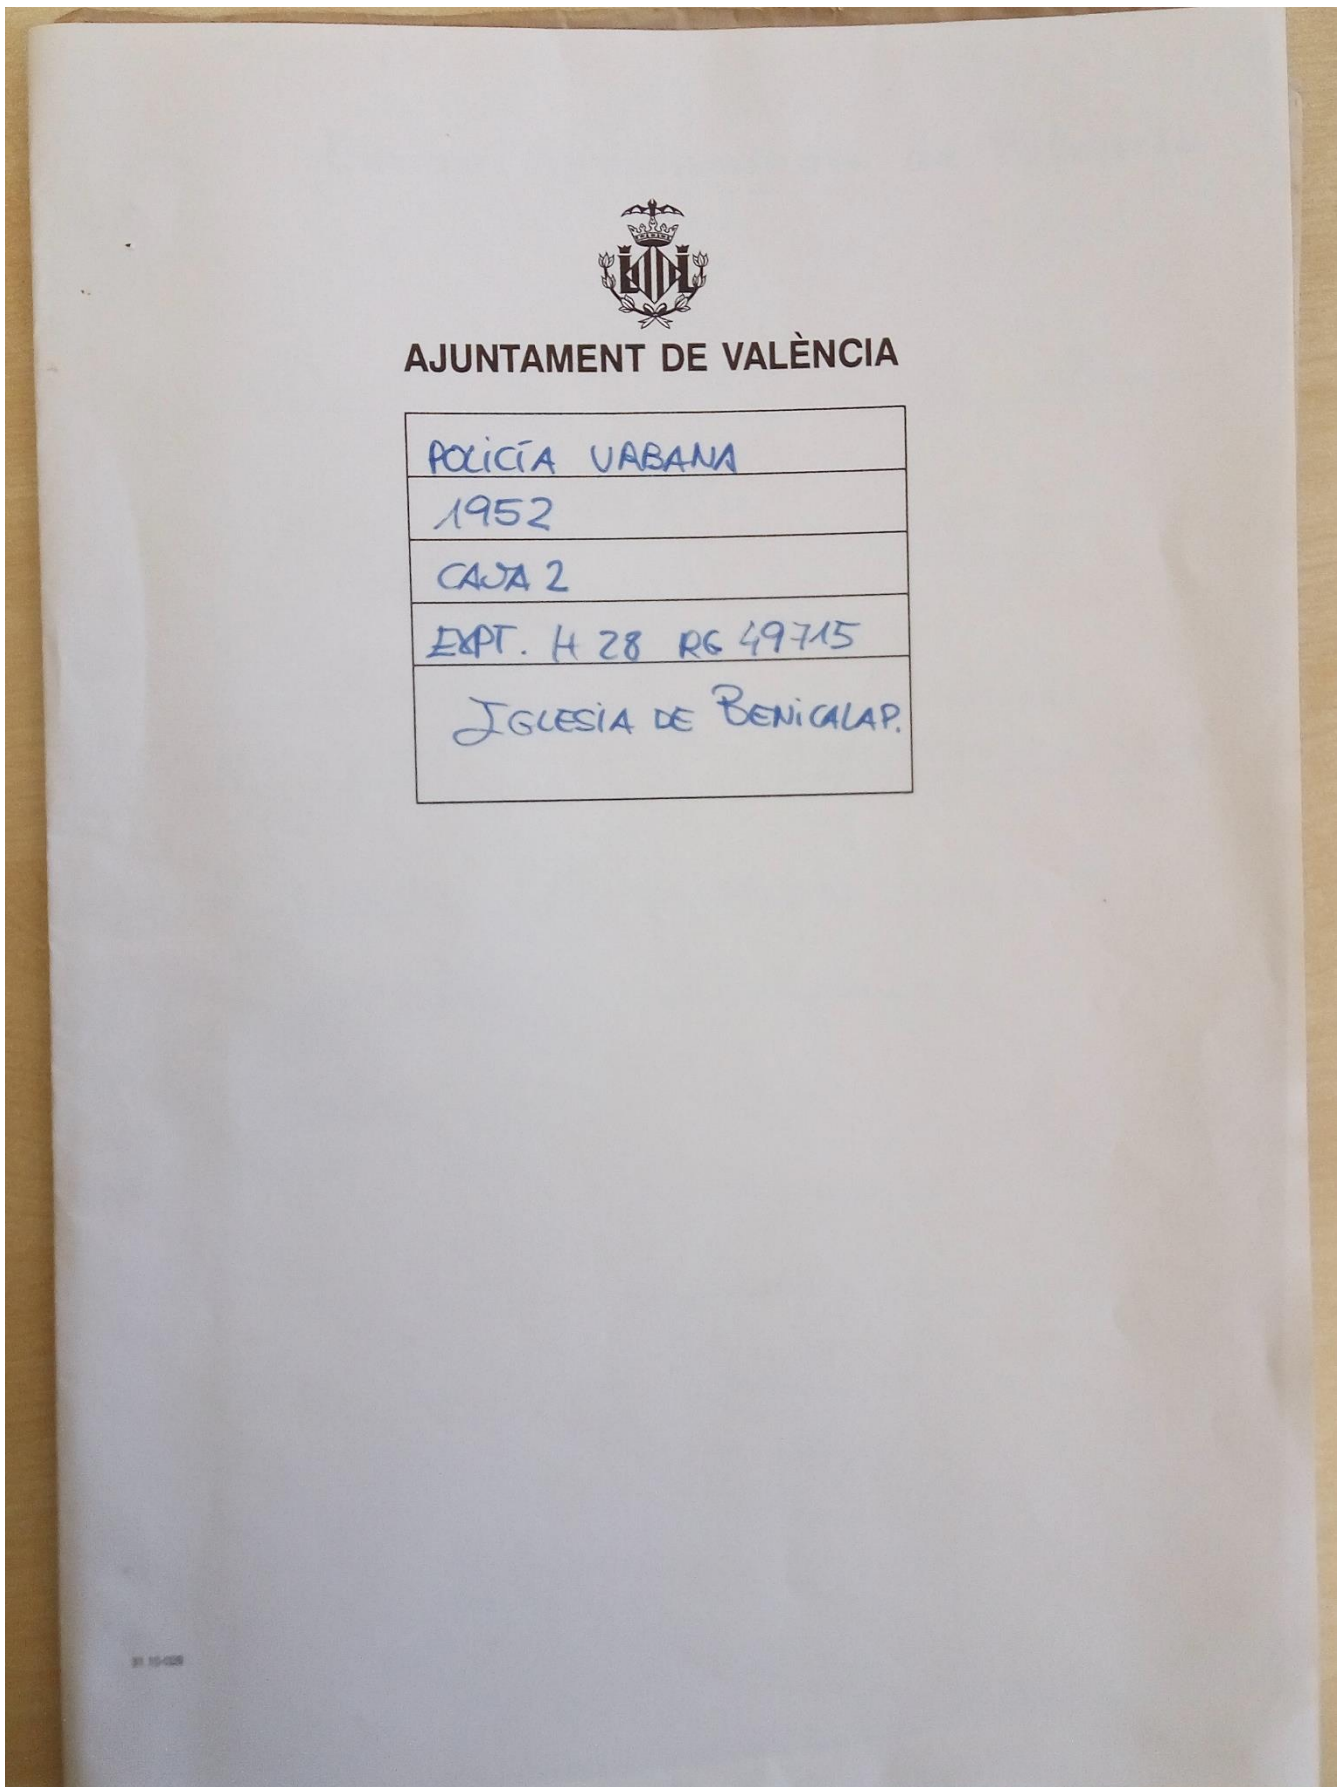 AJUNTAMENT DE VALÈNCIA
POLICÍA URBANA
1952
CAJA 2
EXPT. H 28 RG 49715
IGLESIA DE BENICALAP.